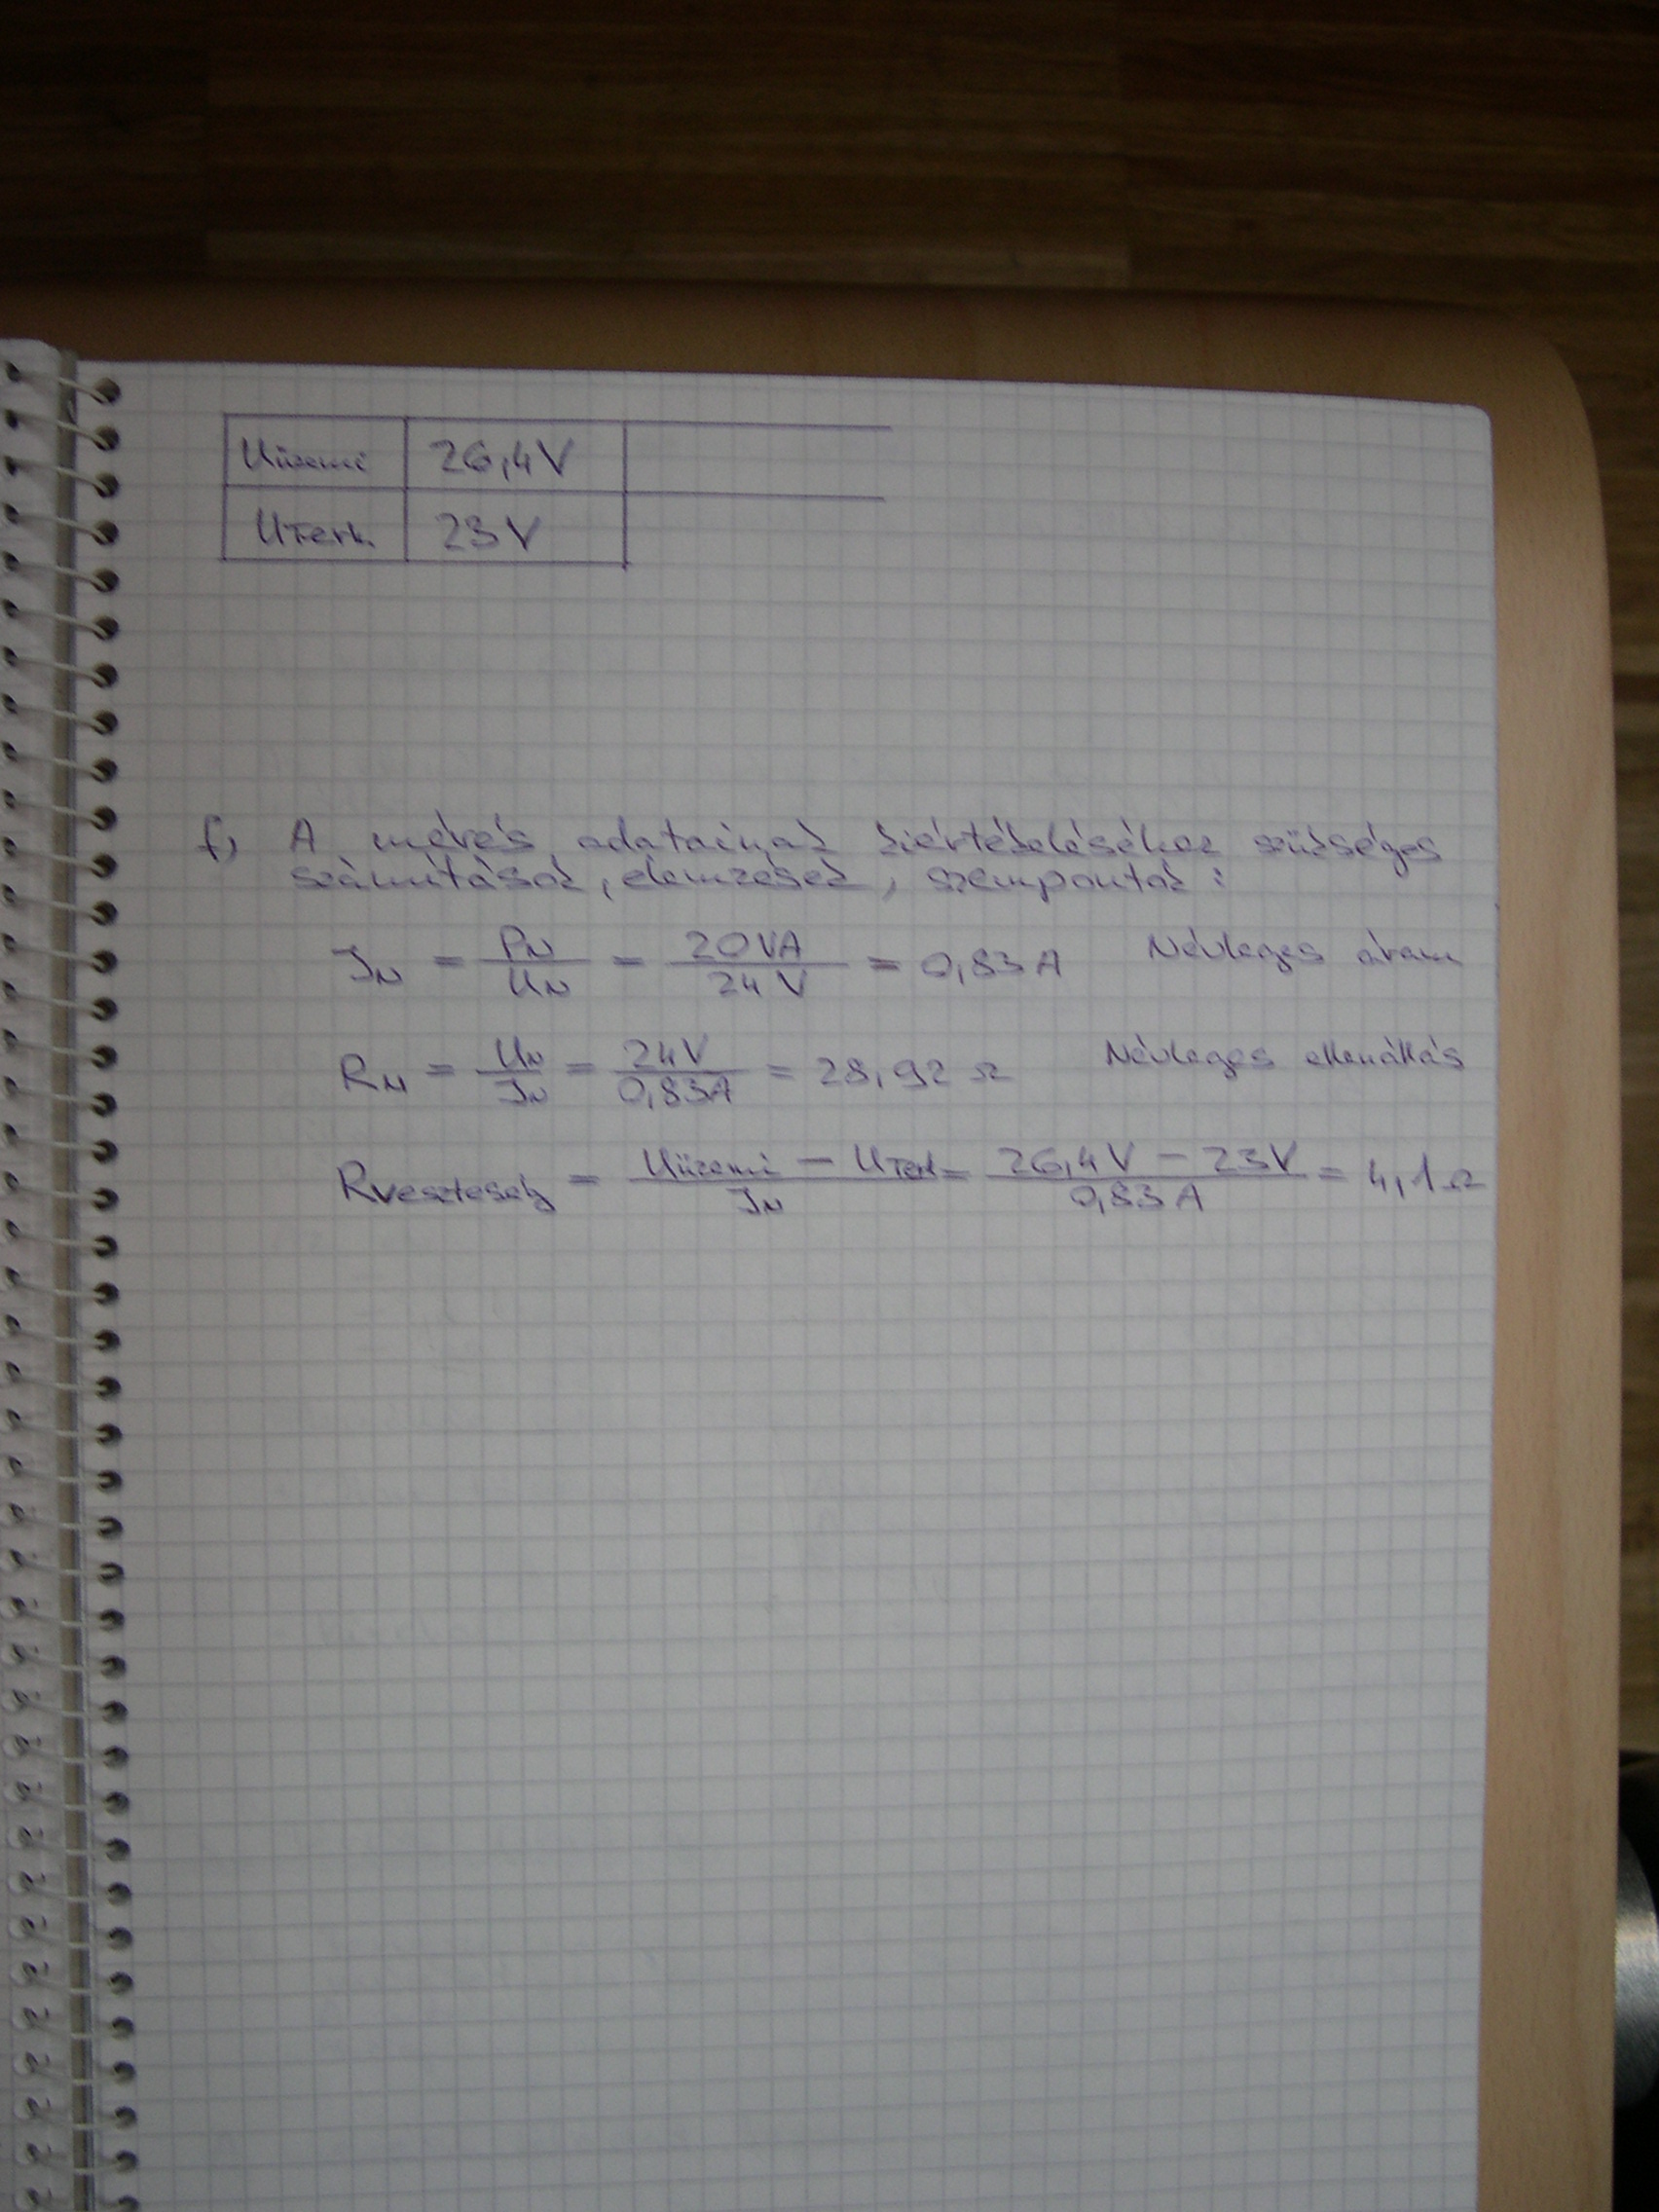 Uüzemi 26,4V
UTerh. 23V
f, A mérés adatainak kiértékeléséhez szükséges
számítások, elemzések, szempontok:
IN = PN/UN = 20VA/24V = 0,83A Névleges áram
RN = UN/IN = 24V/0,83A = 28,92 Ω Névleges ellenállás
Rveszteség = Uüzemi − UTerh/IN = 26,4V − 23V/0,83A = 4,1Ω